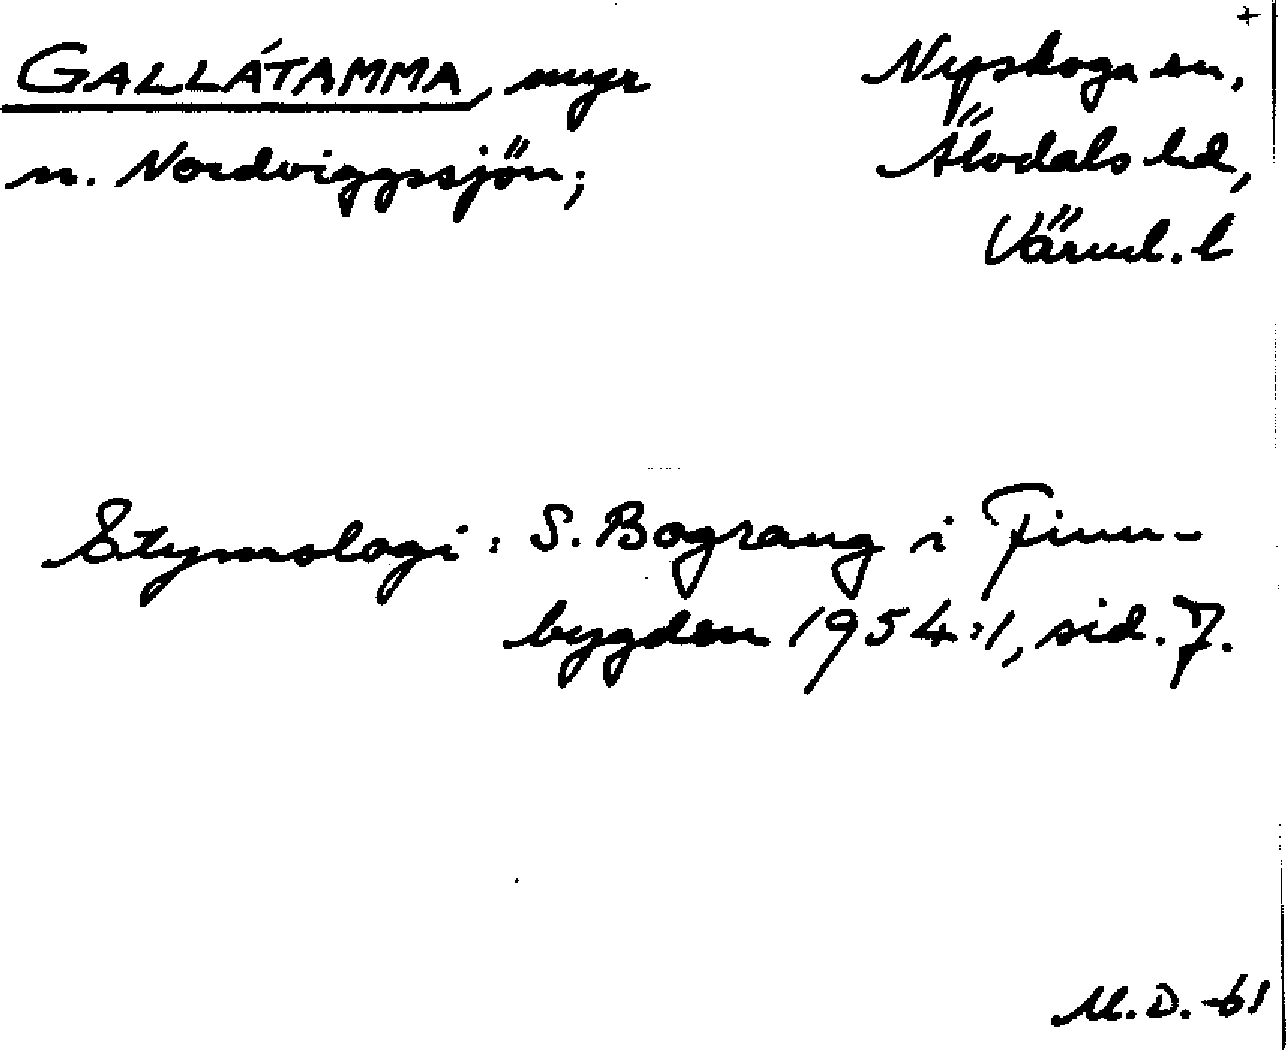 +
GALLÁTAMMA, myr
n. Nordviggssjön;
Nyskoga sn,
Älvdals hd,
Värml. l
Etymologi: S. Bograng i Finn-
bygden 1954:1, sid. 7.
M.D. -61